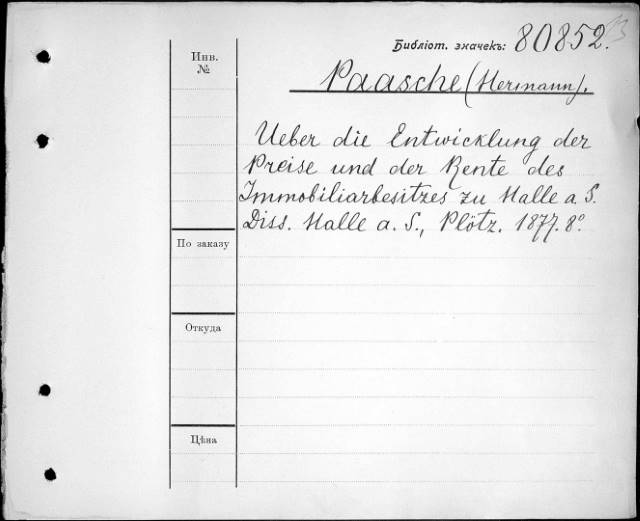 Библіот. значекъ: 80852.
Инв.
№
Paasche (Hermann).
Ueber die Entwicklung der
Preise und der Rente des
Immobiliarbesitzes zu Halle a. S.
Diss. Halle a. S., Plötz. 1877. 8°.
По заказу
Откуда
Цѣна